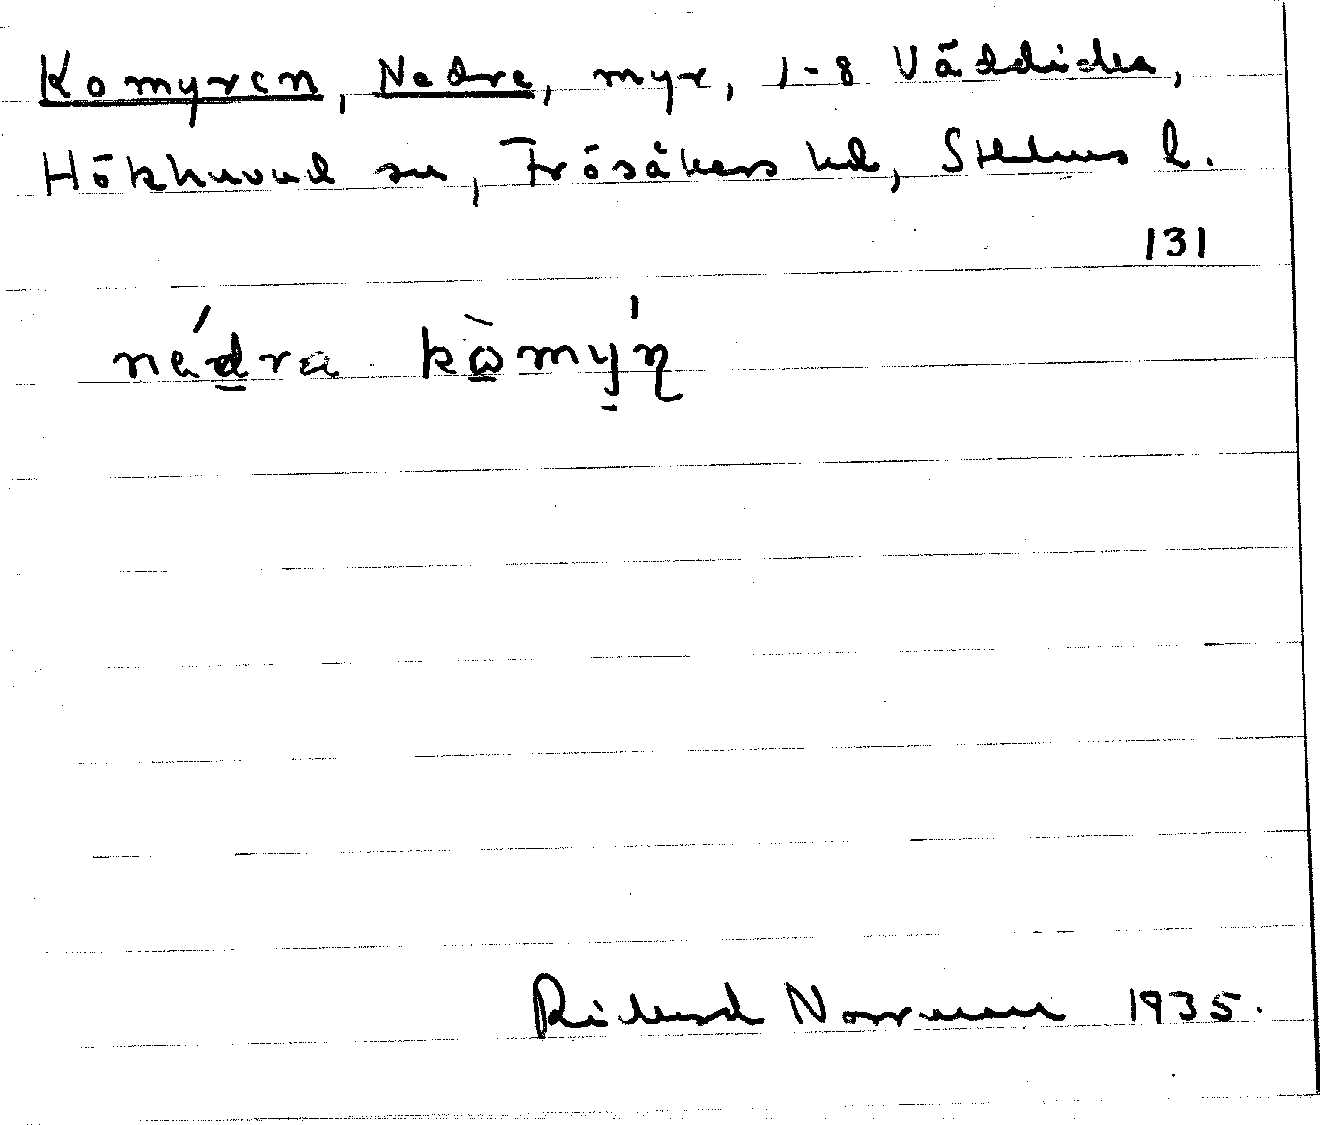 Komyren, Nedre, myr, 1-8 Väddika,
Hökhuvud sn, Frösåkers hd, Sthlms l.
131
nédra kòmy̍n
Rickard Norrman 1935.